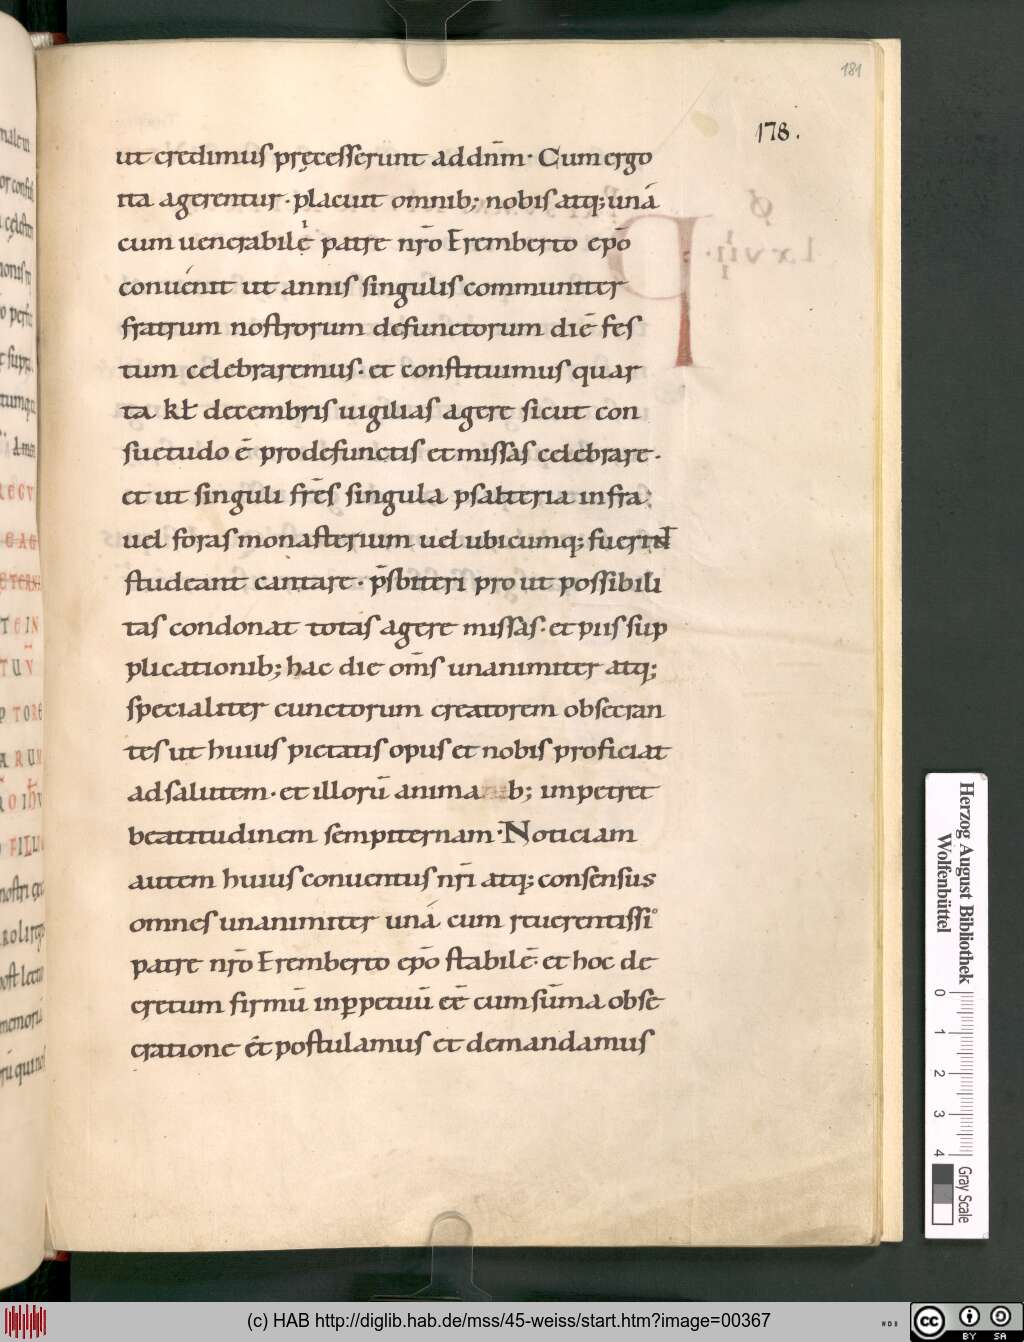 181
178.
ut credimus pręcesserunt ad dn̄m· Cum ergo
ita agerentur· placuit omnib; nobis atq; unā
cum uenerabilę patre nr̄o Eremberto ep̄o
conuenit ut annis singulis communiter
fratrum nostrorum defunctorum diē fes
tum celebraremus· et constituimus quar
ta kł decembris uigilias agere sicut con
suetudo ē pro defunctis et missas celebrare·
et ut singuli fr̄es singula psalteria infra
uel foras monasterium uel ubicumq; fuerint
studeant cantare· p̄sbiteri pro ut possibili
tas condonat totas agere missas· et piis sup
plicationib; hac die om̄s unanimiter atq;
specialiter cunctorum creatorem obsecran
tes ut huius pietatis opus et nobis proficiat
ad salutem· et illorū anima b; impetret
beatitudinem sempiternam· Noticiam
autem huius conuentus nr̄i atq; consensus
omnes unanimiter unā cum reuerentissi°
patre nr̄o Eremberto ep̄o stabilē· et hoc de
cretum firmū in ꝑpetuū eē cum sūma obse
cratione et postulamus et demandamus
lxvii
Herzog August Bibliothek
Wolfenbüttel
0 1 2 3 4
Gray Scale
(c) HAB http://diglib.hab.de/mss/45-weiss/start.htm?image=00367
WDB
cc BY SA